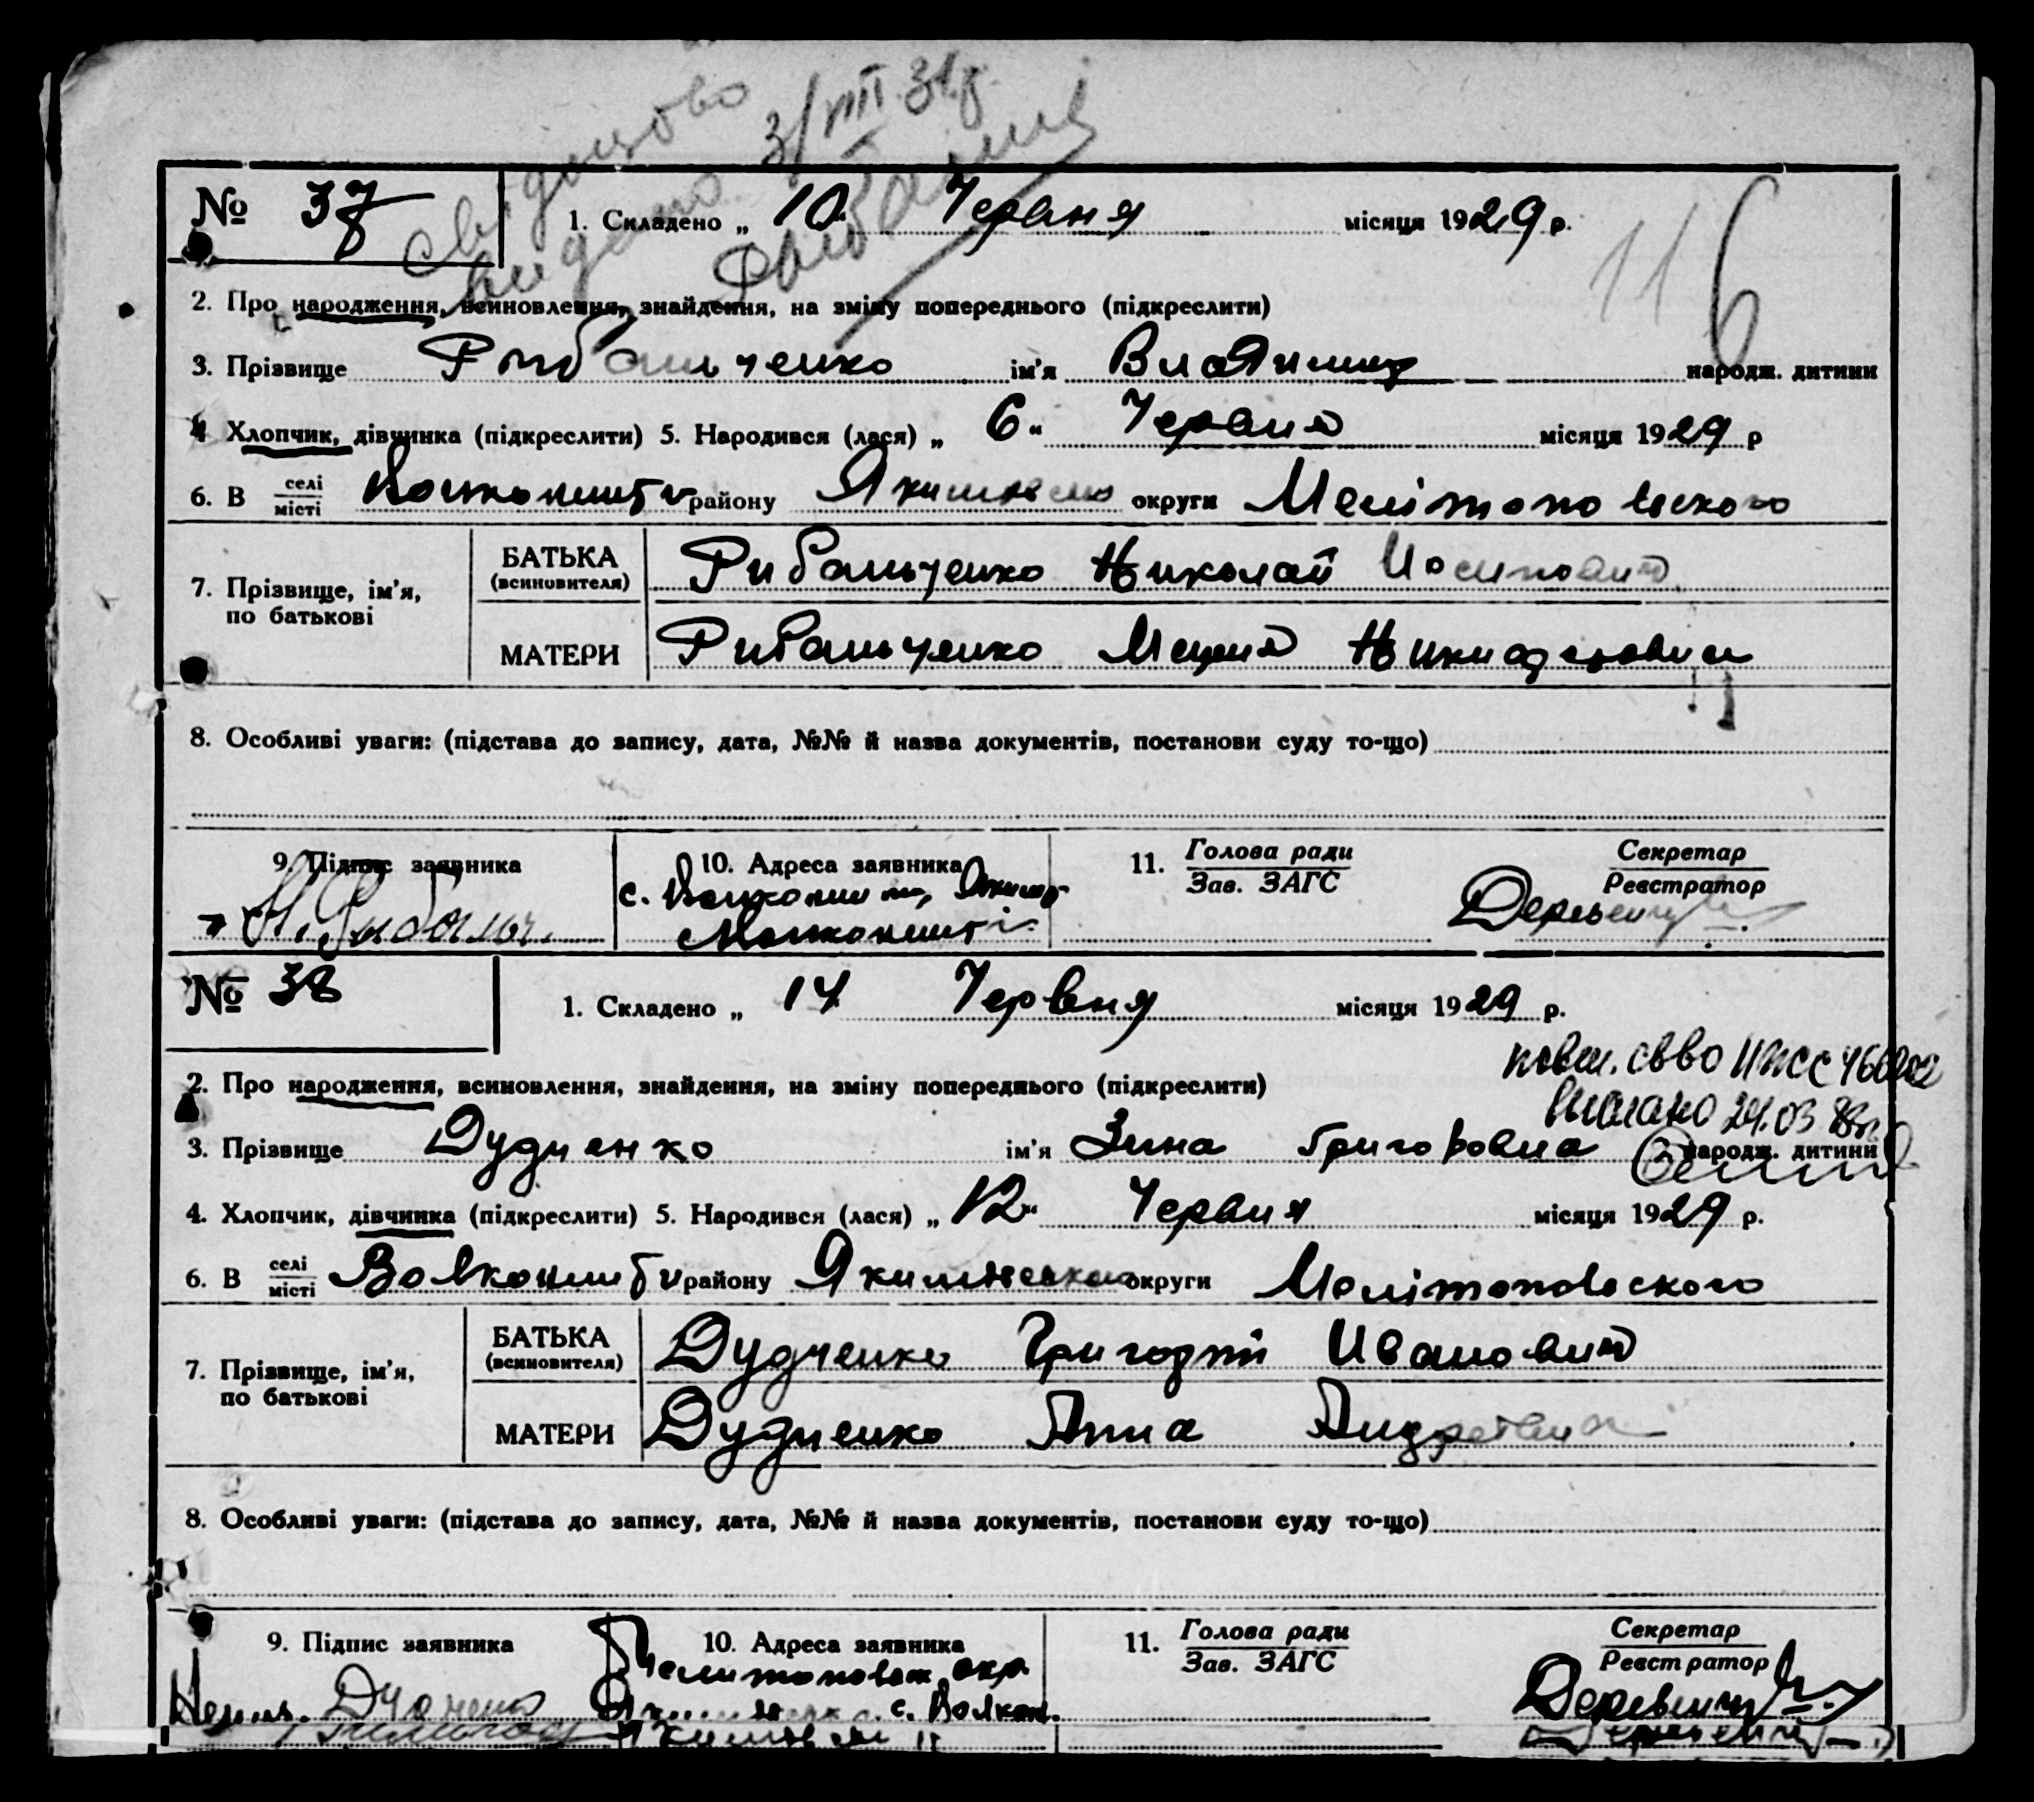 свідоцтво
видано 3/VIII 31 р.
№ 37
1. Складено „ 10 Червня місяця 1929 р.
116
2. Про народження, всиновлення, знайдення, на зміну попереднього (підкреслити)
3. Прізвище Рибальченко ім'я Владимир народж. дитини
4 Хлопчик, дівчинка (підкреслити) 5. Народився (лася) „ 6 " Червня місяця 1929 р
6. В селі місті району округи Мелітопольского
7. Прізвище, ім'я, по батькові
БАТЬКА (всиновителя) Рибальченко Николай Иосипович
МАТЕРИ Рибальченко
8. Особливі уваги: (підстава до запису, дата, №№ й назва документів, постанови суду то-що)
9. Підпис заявника
Н. Рибальч.
10. Адреса заявника
с.
11. Голова ради
Зав. ЗАГС
Секретар
Реєстратор
№ 38
1. Складено „ 14 Червня місяця 1929 р.
повт. св-во
выдано 24.03
2. Про народження, всиновлення, знайдення, на зміну попереднього (підкреслити)
3. Прізвище Дудченко ім'я Зина Григоровна народж. дитини
4. Хлопчик, дівчинка (підкреслити) 5. Народився (лася) „ 12 " Червня місяця 1929 р.
6. В селі місті району округи Мелітопольского
7. Прізвище, ім'я, по батькові
БАТЬКА (всиновителя) Дудченко Григорий Иванович
МАТЕРИ Дудченко Анна Андреевна
8. Особливі уваги: (підстава до запису, дата, №№ й назва документів, постанови суду то-що)
9. Підпис заявника
10. Адреса заявника
Мелитопольск. окр.
11. Голова ради
Зав. ЗАГС
Секретар
Реєстратор